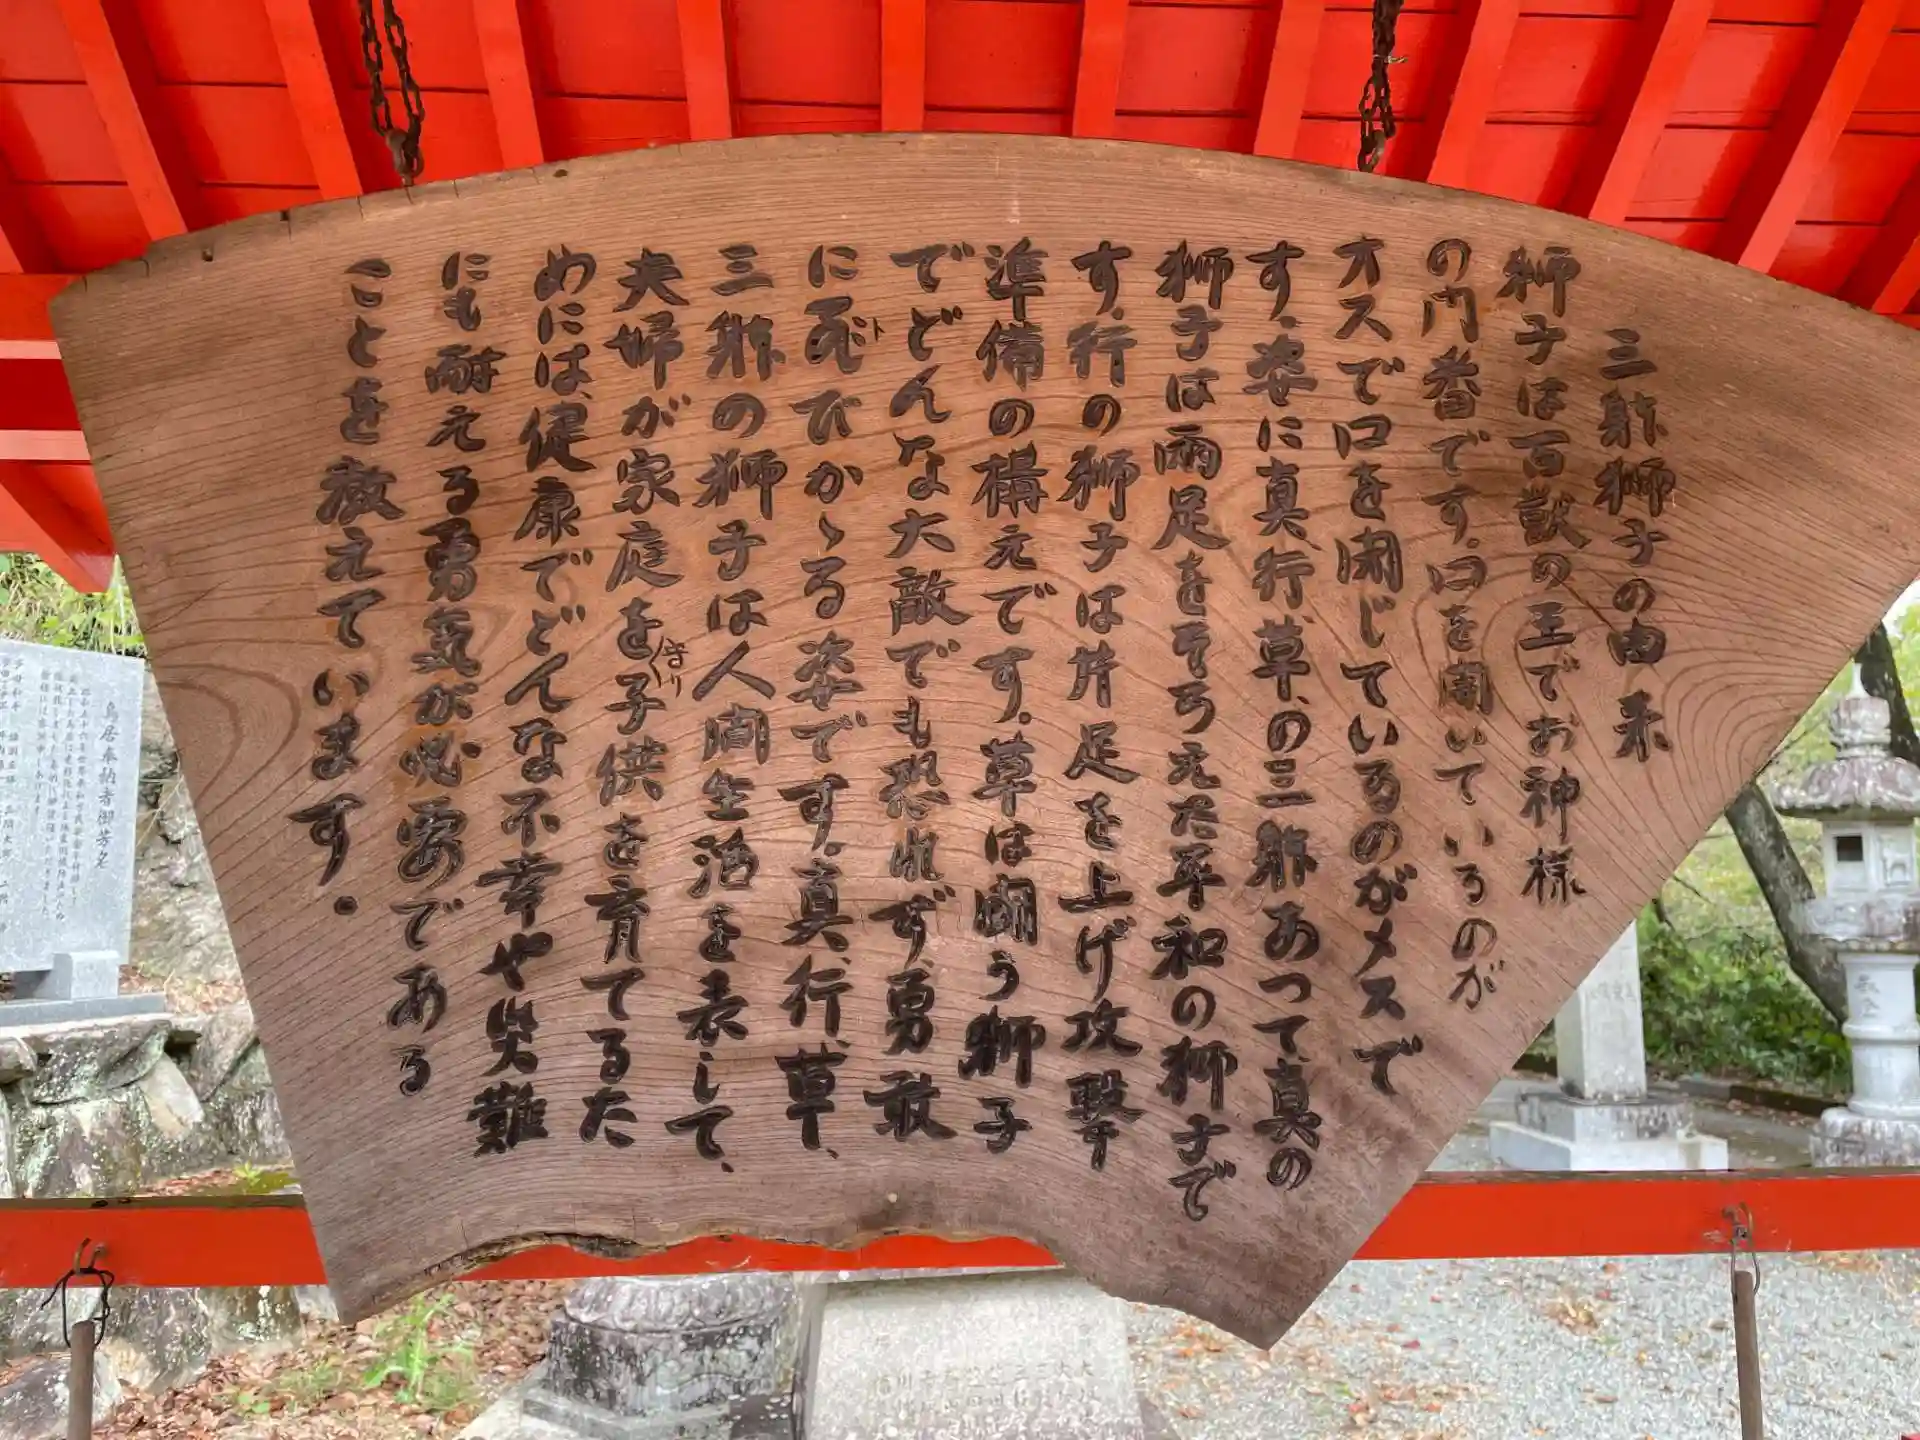 三躰獅子の由来
獅子は百獣の王でお神様
の門番です.口を開いているのが
オスで口を閉じているのがメスで
す.姿に真、行、草、の三躰あって、真の
獅子は両足をそろえた平和の獅子で
す.行の獅子は片足を上げ攻撃
準備の構えです.草は闘う獅子
でどんな大敵でも恐れず、勇敢
に飛びかゝる姿です.真、行、草、
三躰の獅子は人間生活を表して、
夫婦が家庭を守り子供を育てるた
めには、健康でどんな不幸や災難
にも耐える勇気が必要である
ことを教えています.
鳥居奉納者御芳名